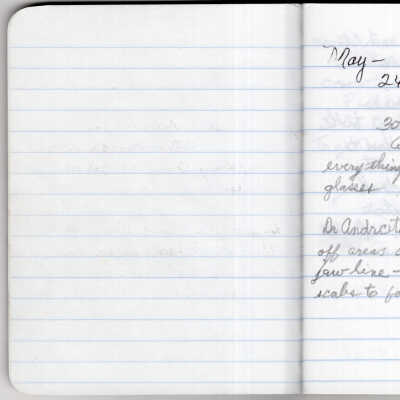 May -
24
30
everything
glasses
Dr Andreoto
off areas
jaw line -
scabs to fo